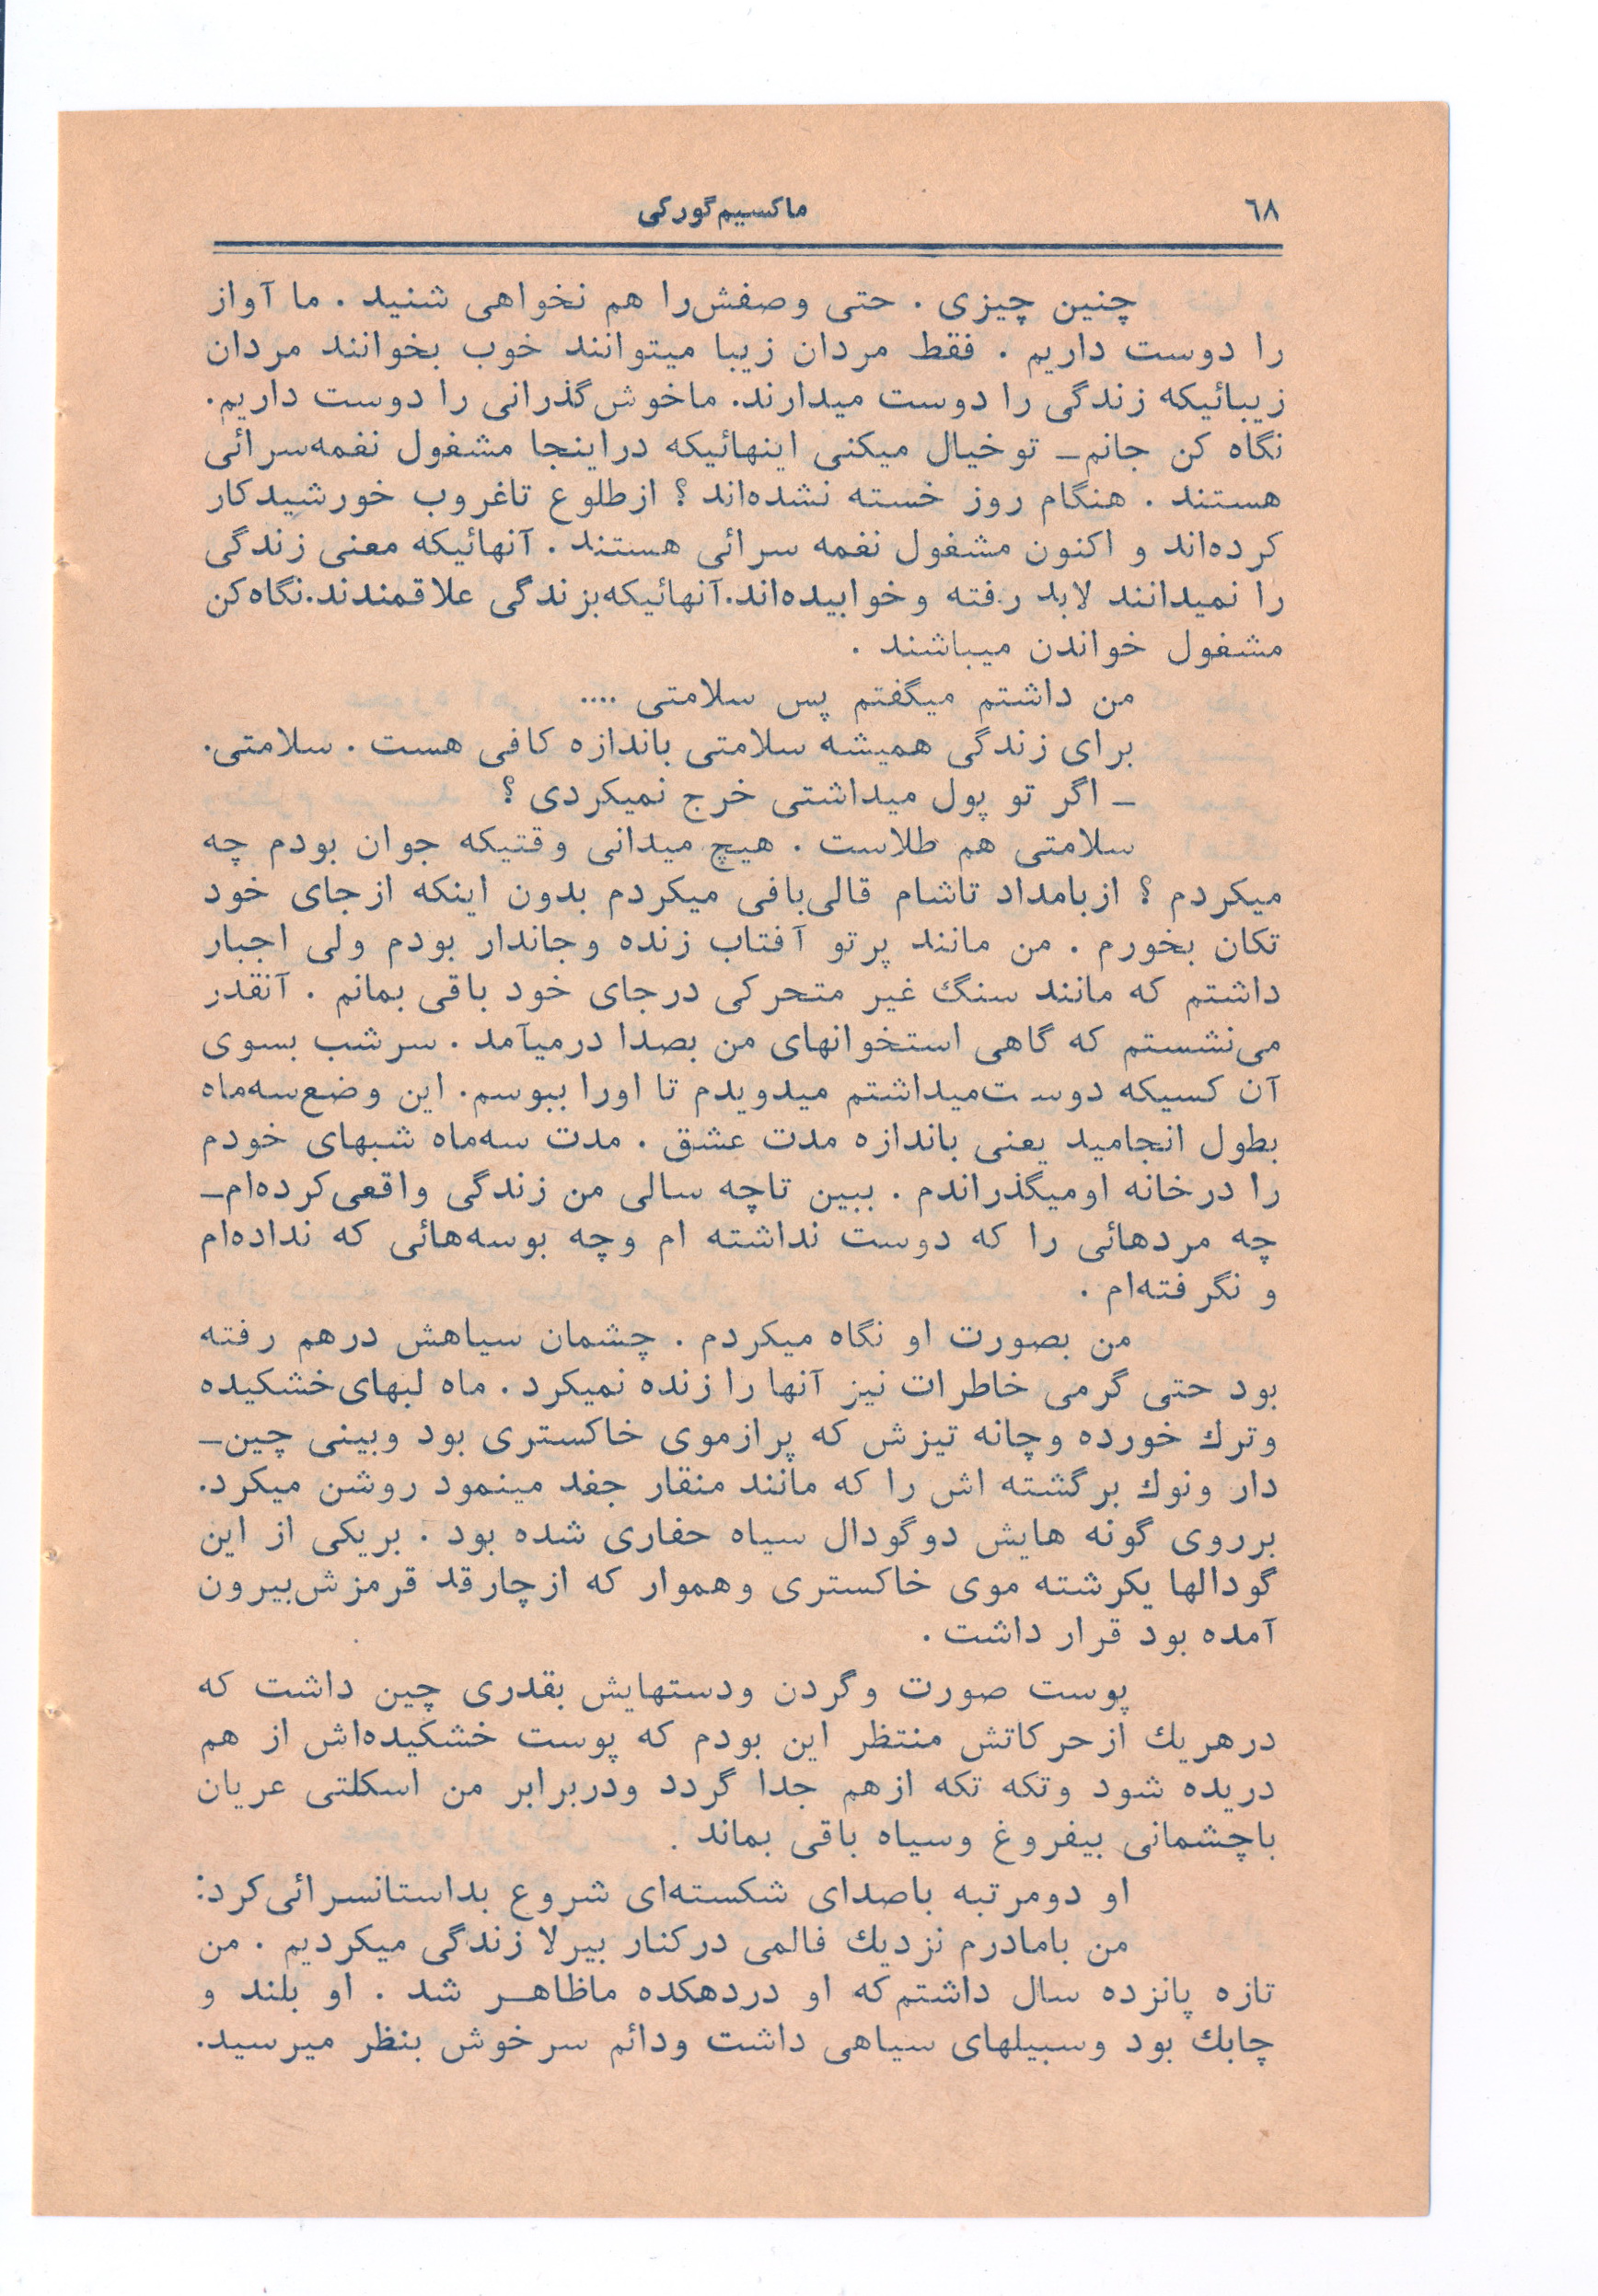 ٦٨
ماکسیم گورکی
چنین چیزی . حتی وصفش‌را هم نخواهی شنید . ما آواز
را دوست داریم . فقط مردان زیبا میتوانند خوب بخوانند مردان
زیبائیکه زندگی را دوست میدارند. ماخوش‌گذرانی را دوست داریم.
نگاه کن جانم ـ توخیال میکنی اینهائیکه دراینجا مشغول نغمه‌سرائی
هستند . هنگام روز خسته نشده‌اند ؟ ازطلوع تاغروب خورشیدکار
کرده‌اند و اکنون مشغول نغمه سرائی هستند . آنهائیکه معنی زندگی
را نمیدانند لابد رفته وخوابیده‌اند.آنهائیکه‌بزندگی علاقمندند.نگاه‌کن
مشغول خواندن میباشند .
من داشتم میگفتم پس سلامتی ....
برای زندگی همیشه سلامتی باندازه کافی هست . سلامتی.
ـ اگر تو پول میداشتی خرج نمیکردی ؟
سلامتی هم طلاست . هیچ میدانی وقتیکه جوان بودم چه
میکردم ؟ ازبامداد تاشام قالی‌بافی میکردم بدون اینکه ازجای خود
تکان بخورم . من مانند پرتو آفتاب زنده وجاندار بودم ولی اجبار
داشتم که مانند سنگ غیر متحرکی درجای خود باقی بمانم . آنقدر
می‌نشستم که گاهی استخوانهای من بصدا درمیآمد . سرشب بسوی
آن کسیکه دوست‌میداشتم میدویدم تا اورا ببوسم. این وضع‌سه‌ماه
بطول انجامید یعنی باندازه مدت عشق . مدت سه‌ماه شبهای خودم
را درخانه اومیگذراندم . ببین تاچه سالی من زندگی واقعی‌کرده‌ام ـ
چه مردهائی را که دوست نداشته ام وچه بوسه‌هائی که نداده‌ام
و نگرفته‌ام .
من بصورت او نگاه میکردم . چشمان سیاهش درهم رفته
بود حتی گرمی خاطرات نیز آنها را زنده نمیکرد . ماه لبهای‌خشکیده
وترك خورده وچانه تیزش که پرازموی خاکستری بود وبینی چین ـ
دار ونوك برگشته اش را که مانند منقار جغد مینمود روشن میکرد.
برروی گونه هایش دوگودال سیاه حفاری شده بود . بریکی از این
گودالها یکرشته موی خاکستری وهموار که ازچارقد قرمزش‌بیرون
آمده بود قرار داشت .
پوست صورت وگردن ودستهایش بقدری چین داشت که
درهریك ازحرکاتش منتظر این بودم که پوست خشکیده‌اش از هم
دریده شود وتکه تکه ازهم جدا گردد ودربرابر من اسکلتی عریان
باچشمانی بیفروغ وسیاه باقی بماند .
او دومرتبه باصدای شکسته‌ای شروع بداستانسرائی‌کرد:
من بامادرم نزدیك فالمی درکنار بیرلا زندگی میکردیم . من
تازه پانزده سال داشتم‌که او دردهکده ماظاهر شد . او بلند و
چابك بود وسبیلهای سیاهی داشت ودائم سرخوش بنظر میرسید.